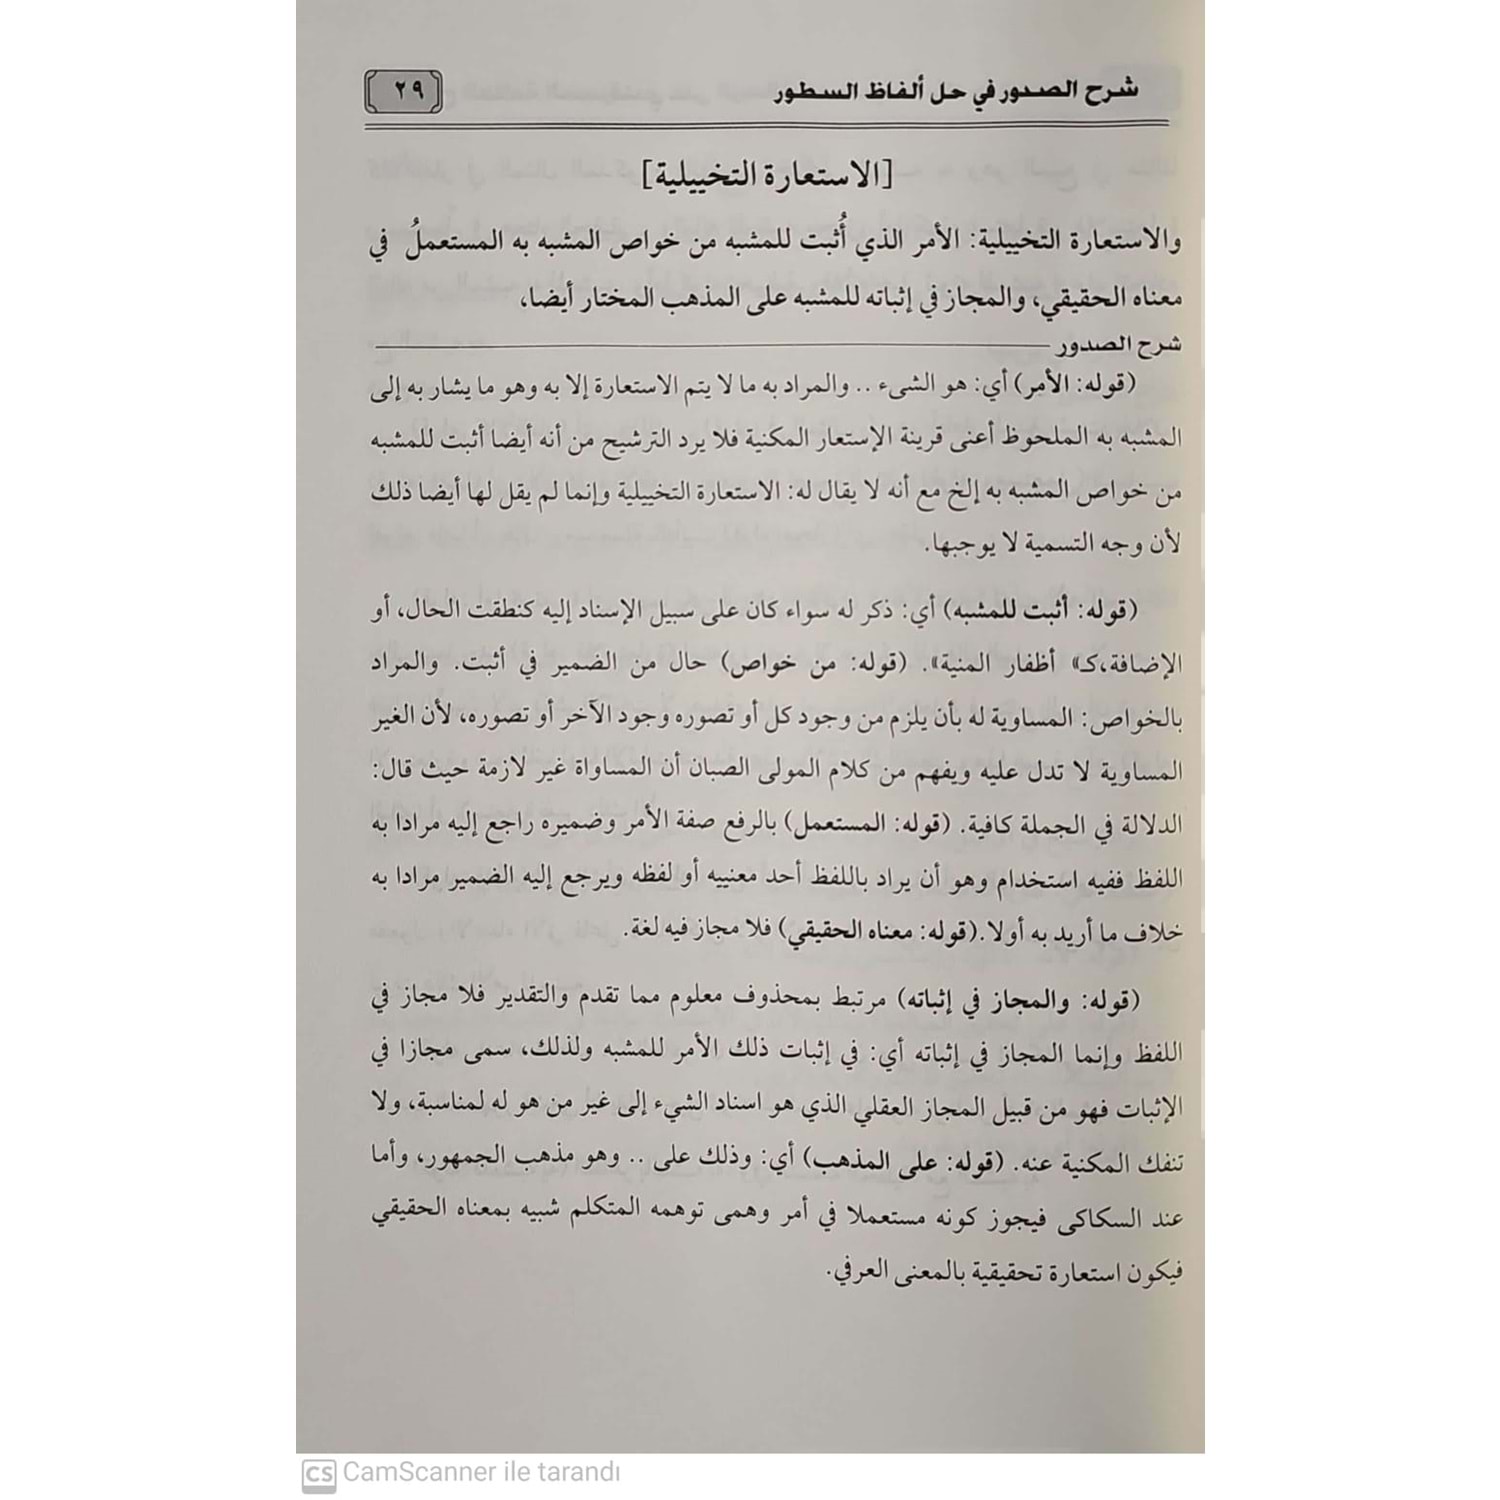 شرح الصدور في حل ألفاظ السطور
٢٩
[الاستعارة التخييلية]
والاستعارة التخييلية: الأمر الذي أُثبت للمشبه من خواص المشبه به المستعملُ في
معناه الحقيقي، والمجاز في إثباته للمشبه على المذهب المختار أيضا،
شرح الصدور
(قوله: الأمر) أي: هو الشىء .. والمراد به ما لا يتم الاستعارة إلا به وهو ما يشار به إلى
المشبه به الملحوظ أعنى قرينة الإستعار المكنية فلا يرد الترشيح من أنه أيضا أثبت للمشبه
من خواص المشبه به إلخ مع أنه لا يقال له: الاستعارة التخييلية وإنما لم يقل لها أيضا ذلك
لأن وجه التسمية لا يوجبها.
(قوله: أثبت للمشبه) أي: ذكر له سواء كان على سبيل الإسناد إليه كنطقت الحال، أو
الإضافة،كـ» أظفار المنية». (قوله: من خواص) حال من الضمير في أثبت. والمراد
بالخواص: المساوية له بأن يلزم من وجود كل أو تصوره وجود الآخر أو تصوره، لأن الغير
المساوية لا تدل عليه ويفهم من كلام المولى الصبان أن المساواة غير لازمة حيث قال:
الدلالة في الجملة كافية. (قوله: المستعمل) بالرفع صفة الأمر وضميره راجع إليه مرادا به
اللفظ ففيه استخدام وهو أن يراد باللفظ أحد معنييه أو لفظه ويرجع إليه الضمير مرادا به
خلاف ما أريد به أولا.(قوله: معناه الحقيقي) فلا مجاز فيه لغة.
(قوله: والمجاز في إثباته) مرتبط بمحذوف معلوم مما تقدم والتقدير فلا مجاز في
اللفظ وإنما المجاز في إثباته أي: في إثبات ذلك الأمر للمشبه ولذلك، سمى مجازا في
الإثبات فهو من قبيل المجاز العقلي الذي هو اسناد الشيء إلى غير من هو له لمناسبة، ولا
تنفك المكنية عنه. (قوله: على المذهب) أي: وذلك على .. وهو مذهب الجمهور، وأما
عند السكاكى فيجوز كونه مستعملا في أمر وهمى توهمه المتكلم شبيه بمعناه الحقيقي
فيكون استعارة تحقيقية بالمعنى العرفي.
CS CamScanner ile tarandı